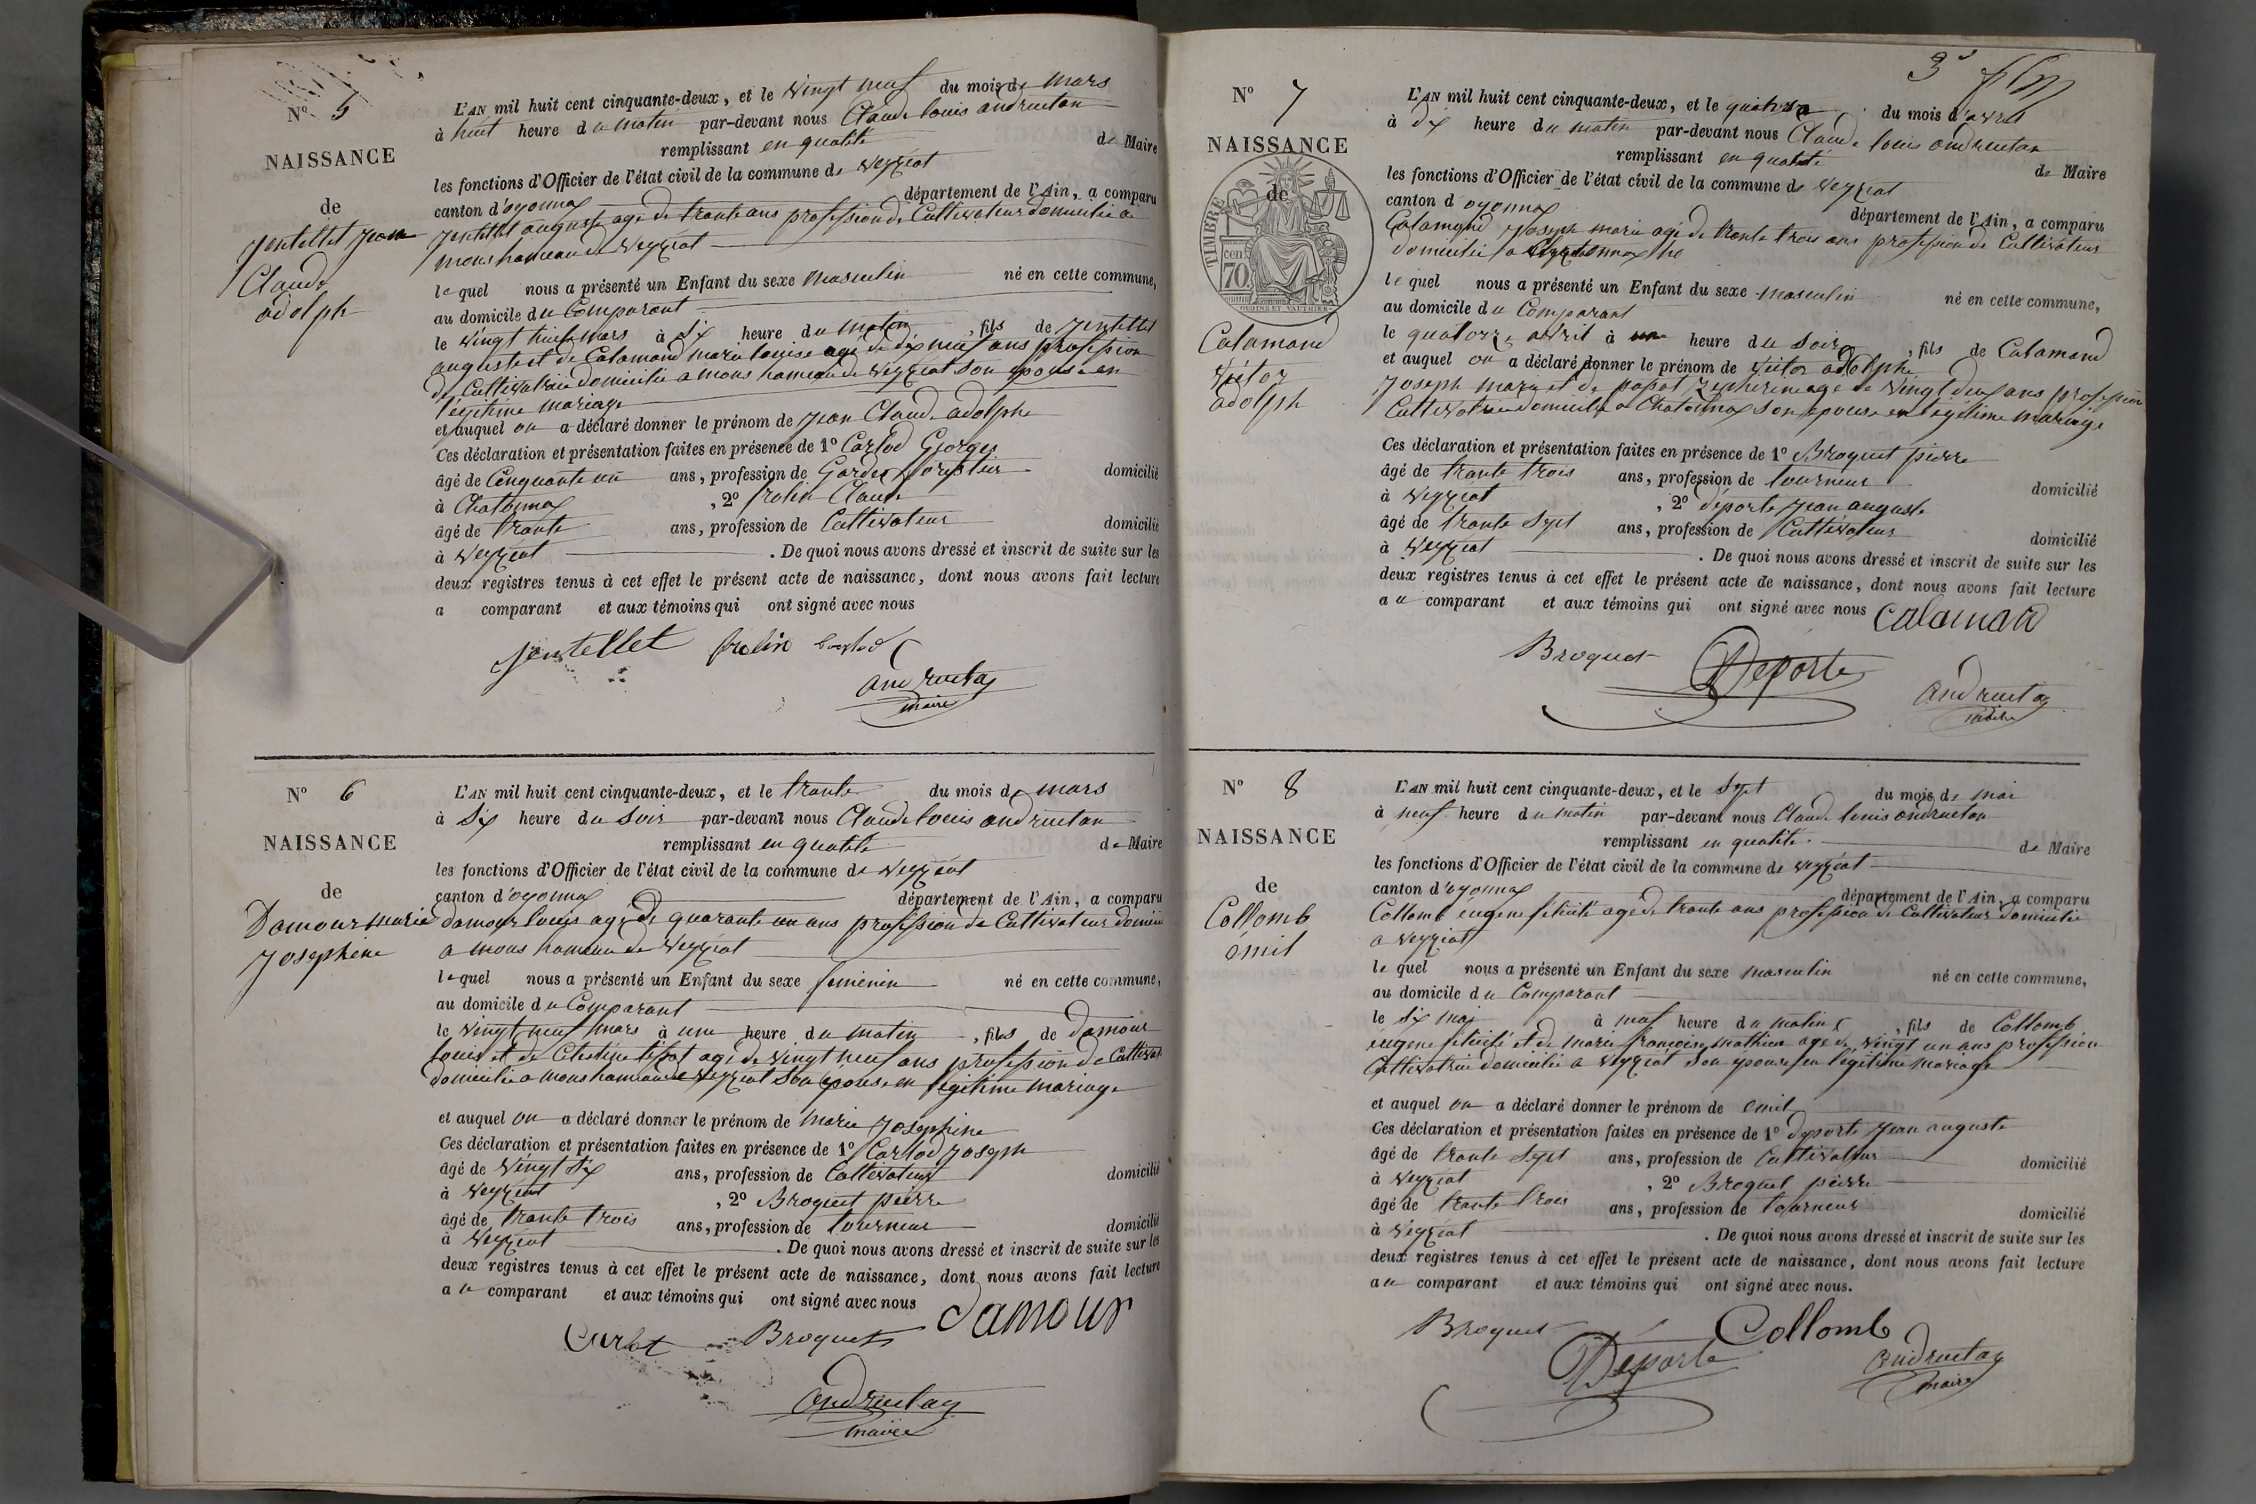 Nº 5
NAISSANCE
de
Jentellet Jean
Claude
adolph
L'AN mil huit cent cinquante-deux, et le vingt neuf du mois de mars
à huit heure du matin par-devant nous Claude louis andruetan
remplissant en qualité de Maire
les fonctions d'Officier de l'état civil de la commune de veyziat
canton d'oyonnax département de l'Ain, a comparu
Jentellet auguste agé de trante ans profession de Cultivateur domicilié a
mons hameau de veyziat
lequel nous a présenté un Enfant du sexe masculin né en cette commune,
au domicile du Comparant
le vingt huit mars à six heure du matin, fils de Jentellet
auguste et de Calamand marie louise agé de dix neuf ans profession
de Cultivatrice domicilié a mons hameau de veyziat son epouse en
légitime mariage
et auquel on a déclaré donner le prénom de Jean Claude adolphe
Ces déclaration et présentation faites en présence de 1º Carlod Georges
âgé de Cinquante un ans, profession de Garde forestier domicilié
à Chatonnax, 2º frolin Claude
âgé de trante ans, profession de Cultivateur domicilié
à veyziat. De quoi nous avons dressé et inscrit de suite sur les
deux registres tenus à cet effet le présent acte de naissance, dont nous avons fait lecture
a comparant et aux témoins qui ont signé avec nous
Jentellet frolin Carlod
andruetan
maire
Nº 6
NAISSANCE
de
Damour marie
Josephine
L'AN mil huit cent cinquante-deux, et le trante du mois de mars
à six heure du soir par-devant nous Claude louis andruetan
remplissant en qualité de Maire
les fonctions d'Officier de l'état civil de la commune de veyziat
canton d'oyonnax département de l'Ain, a comparu
damour louis agé de quarante un ans profession de Cultivateur domicilié
a mons hameau de veyziat
lequel nous a présenté un Enfant du sexe feminin né en cette commune,
au domicile du Comparant
le vingt neuf mars à une heure du matin, fils de damour
louis et de Celestine agé de vingt neuf ans profession de Cultivat
domicilié a mons hameau de veyziat son épouse en légitime mariage
et auquel on a déclaré donner le prénom de marie Josephine
Ces déclaration et présentation faites en présence de 1º Carlod Joseph
âgé de vingt six ans, profession de Cultivateur domicilié
à veyziat, 2º Broquet pierre
âgé de trante trois ans, profession de tourneur domicilié
à veyziat. De quoi nous avons dressé et inscrit de suite sur les
deux registres tenus à cet effet le présent acte de naissance, dont nous avons fait lecture
au comparant et aux témoins qui ont signé avec nous Damour
Broquet
andruetan
maire
3
Nº 7
NAISSANCE
de
TIMBRE
cen
70
Calamand
victor
adolph
L'AN mil huit cent cinquante-deux, et le quatorze du mois d'avril
à dix heure du matin par-devant nous Claude louis andruetan
remplissant en qualité de Maire
les fonctions d'Officier de l'état civil de la commune de veyziat
canton d'oyonnax département de l'Ain, a comparu
Calamand Joseph marie agé de trante trois ans profession de Cultivateur
domicilié a
lequel nous a présenté un Enfant du sexe masculin né en cette commune,
au domicile du Comparant
le quatorze avril à heure du soir, fils de Calamand
et auquel on a déclaré donner le prénom de victor adolphe
Joseph marie et de zepherine agé de vingt deux ans profession
Cultivatrice domicilié a Chatonnax son epouse en légitime mariage
Ces déclaration et présentation faites en présence de 1º Broquet pierre
âgé de trante trois ans, profession de tourneur domicilié
à veyziat, 2º déporte Jean auguste
âgé de trante sept ans, profession de Cultivateur domicilié
à veyziat. De quoi nous avons dressé et inscrit de suite sur les
deux registres tenus à cet effet le présent acte de naissance, dont nous avons fait lecture
au comparant et aux témoins qui ont signé avec nous Calaman
Broquet Deporte andruetan
maire
Nº 8
NAISSANCE
de
Collomb
émil
L'AN mil huit cent cinquante-deux, et le sept du mois de mai
à neuf heure du matin par-devant nous Claude louis andruetan
remplissant en qualité de Maire
les fonctions d'Officier de l'état civil de la commune de veyziat
canton d'oyonnax département de l'Ain, a comparu
Collomb eugene felicité agé de trante ans profession de Cultivateur domicilié
a veyziat
lequel nous a présenté un Enfant du sexe masculin né en cette commune,
au domicile du Comparant
le six mai à neuf heure du matin, fils de Collomb
eugene felicité et de marie francoise mathieu agé de vingt un ans profession
Cultivatrice domicilié a veyziat son epouse en légitime mariage
et auquel on a déclaré donner le prénom de emil
Ces déclaration et présentation faites en présence de 1º déporte Jean auguste
âgé de trante sept ans, profession de Cultivateur domicilié
à veyziat, 2º Broquet pierre
âgé de trante trois ans, profession de tourneur domicilié
à veyziat. De quoi nous avons dressé et inscrit de suite sur les
deux registres tenus à cet effet le présent acte de naissance, dont nous avons fait lecture
au comparant et aux témoins qui ont signé avec nous.
Broquet Collomb
Déporte andruetan
maire